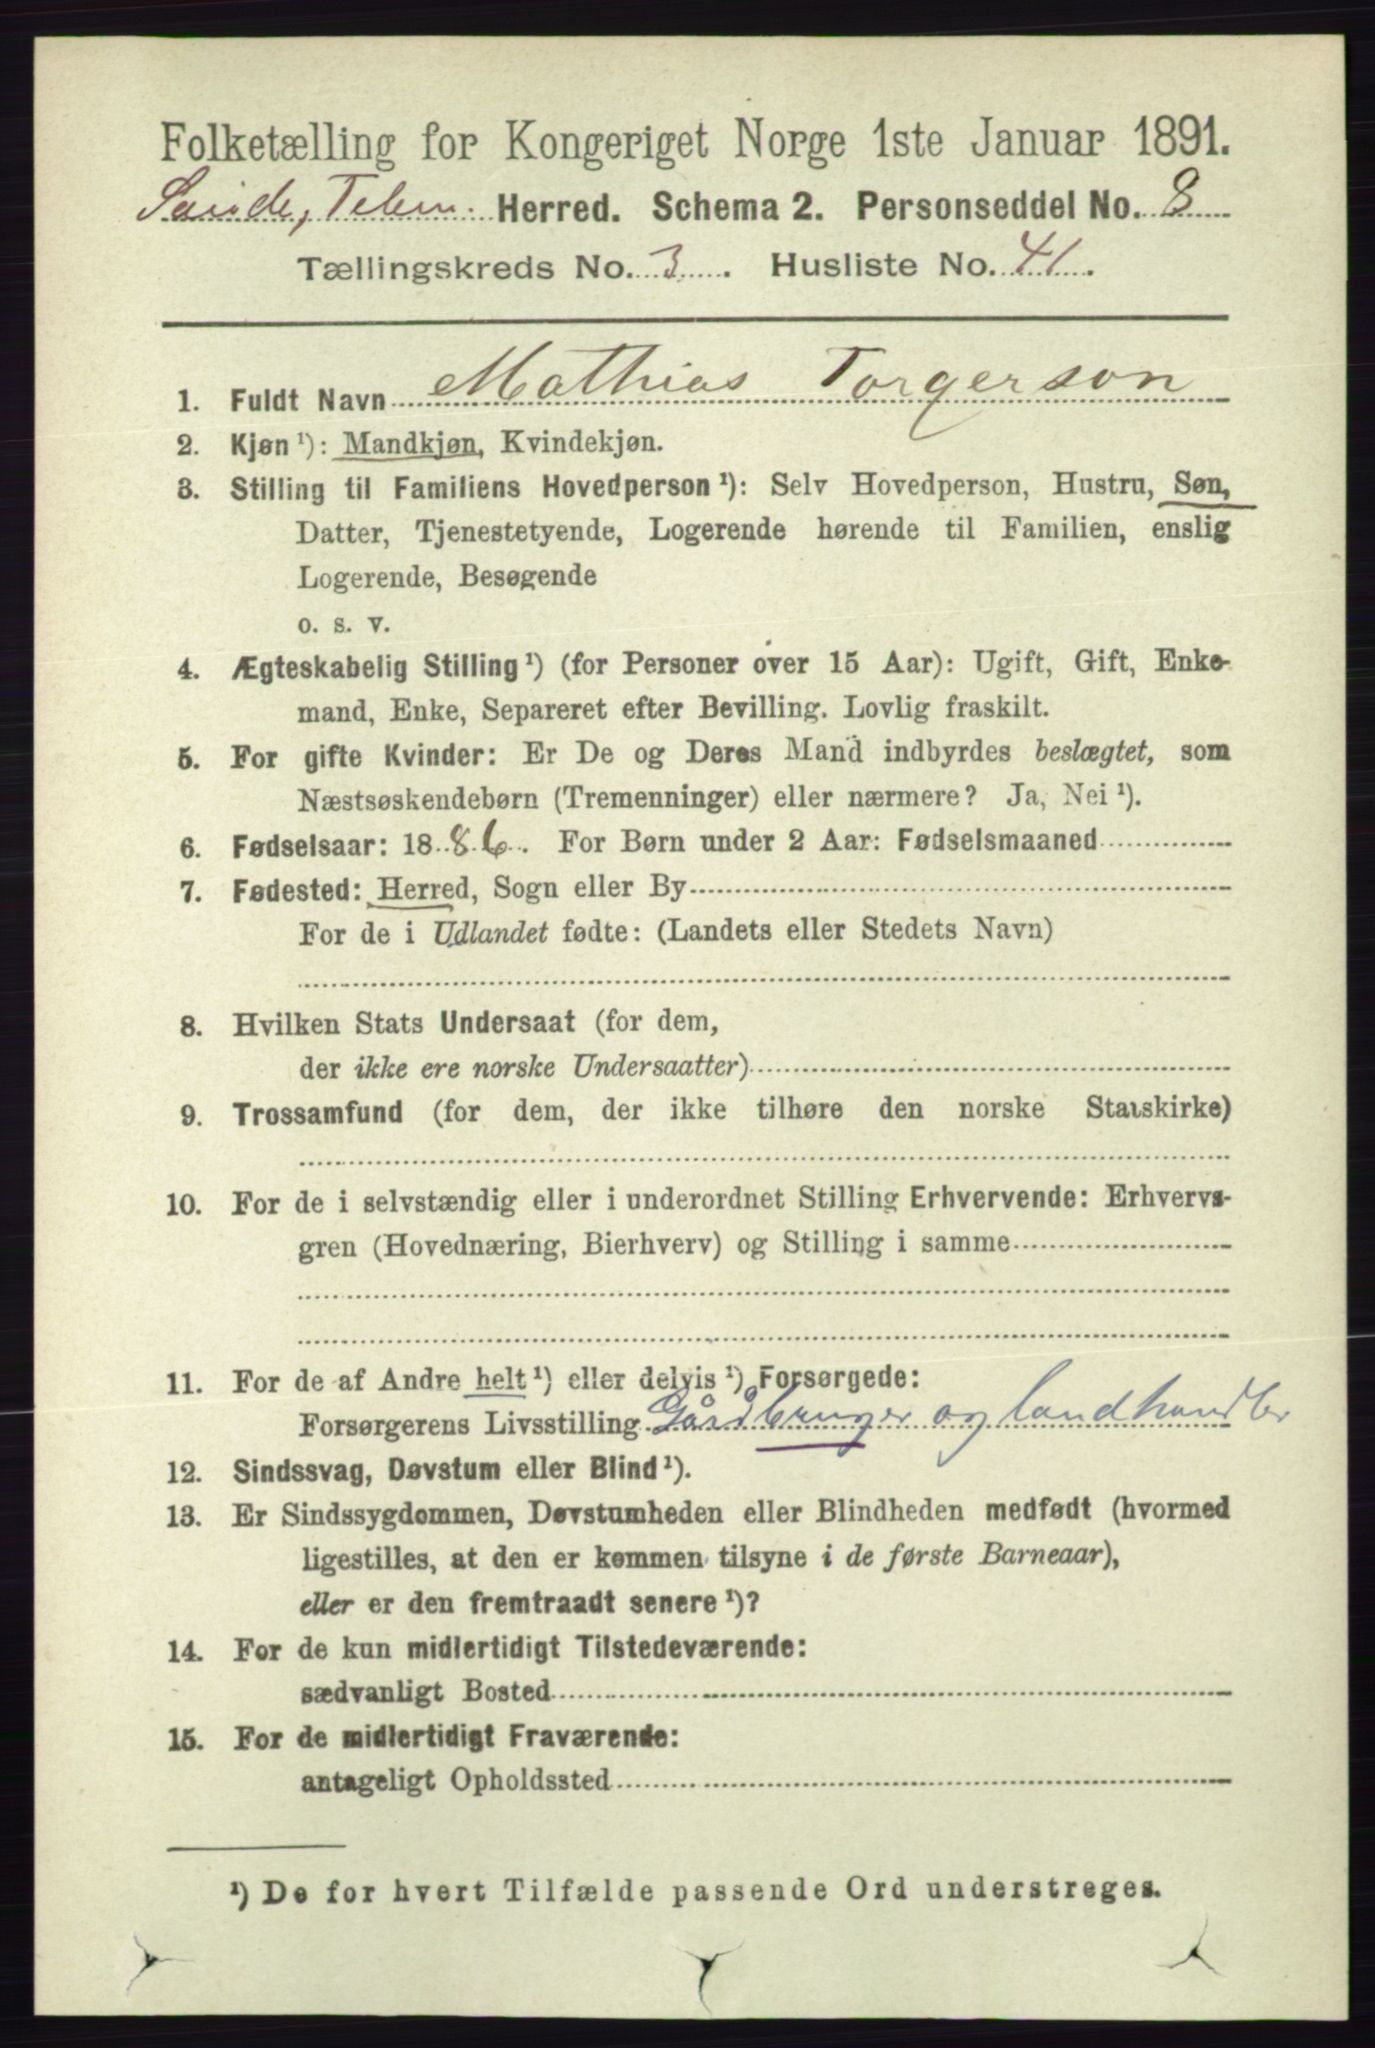 Folketælling for Kongeriget Norge 1ste Januar 1891.
Telem. Herred. Schema 2. Personseddel No. 8
Tællingskreds No. 3. Husliste No. 41.
1. Fuldt Navn Mathias Torgerson
2. Kjøn¹): Mandkjøn, Kvindekjøn.
3. Stilling til Familiens Hovedperson¹): Selv Hovedperson, Hustru, Søn,
Datter, Tjenestetyende, Logerende hørende til Familien, enslig
Logerende, Besøgende
o. s. v.
4. Ægteskabelig Stilling¹) (for Personer over 15 Aar): Ugift, Gift, Enke-
mand, Enke, Separeret efter Bevilling. Lovlig fraskilt.
5. For gifte Kvinder: Er De og Deres Mand indbyrdes beslægtet, som
Næstsøskendebørn (Tremenninger) eller nærmere? Ja, Nei¹).
6. Fødselsaar: 1886. For Børn under 2 Aar: Fødselsmaaned
7. Fødested: Herred, Sogn eller By
For de i Udlandet fødte: (Landets eller Stedets Navn)
8. Hvilken Stats Undersaat (for dem,
der ikke ere norske Undersaatter)
9. Trossamfund (for dem, der ikke tilhøre den norske Statskirke)
10. For de i selvstændig eller i underordnet Stilling Erhvervende: Erhvervs-
gren (Hovednæring, Bierhverv) og Stilling i samme
11. For de af Andre helt¹) eller delvis¹) Forsørgede:
Forsørgerens Livsstilling Gårdbruger og landhandler
12. Sindssvag, Døvstum eller Blind¹).
13. Er Sindssygdommen, Døvstumheden eller Blindheden medfødt (hvormed
ligestilles, at den er kommen tilsyne i de første Barneaar),
eller er den fremtraadt senere¹)?
14. For de kun midlertidigt Tilstedeværende:
sædvanligt Bosted
15. For de midlertidigt Fraværende:
antageligt Opholdssted
¹) De for hvert Tilfælde passende Ord understreges.